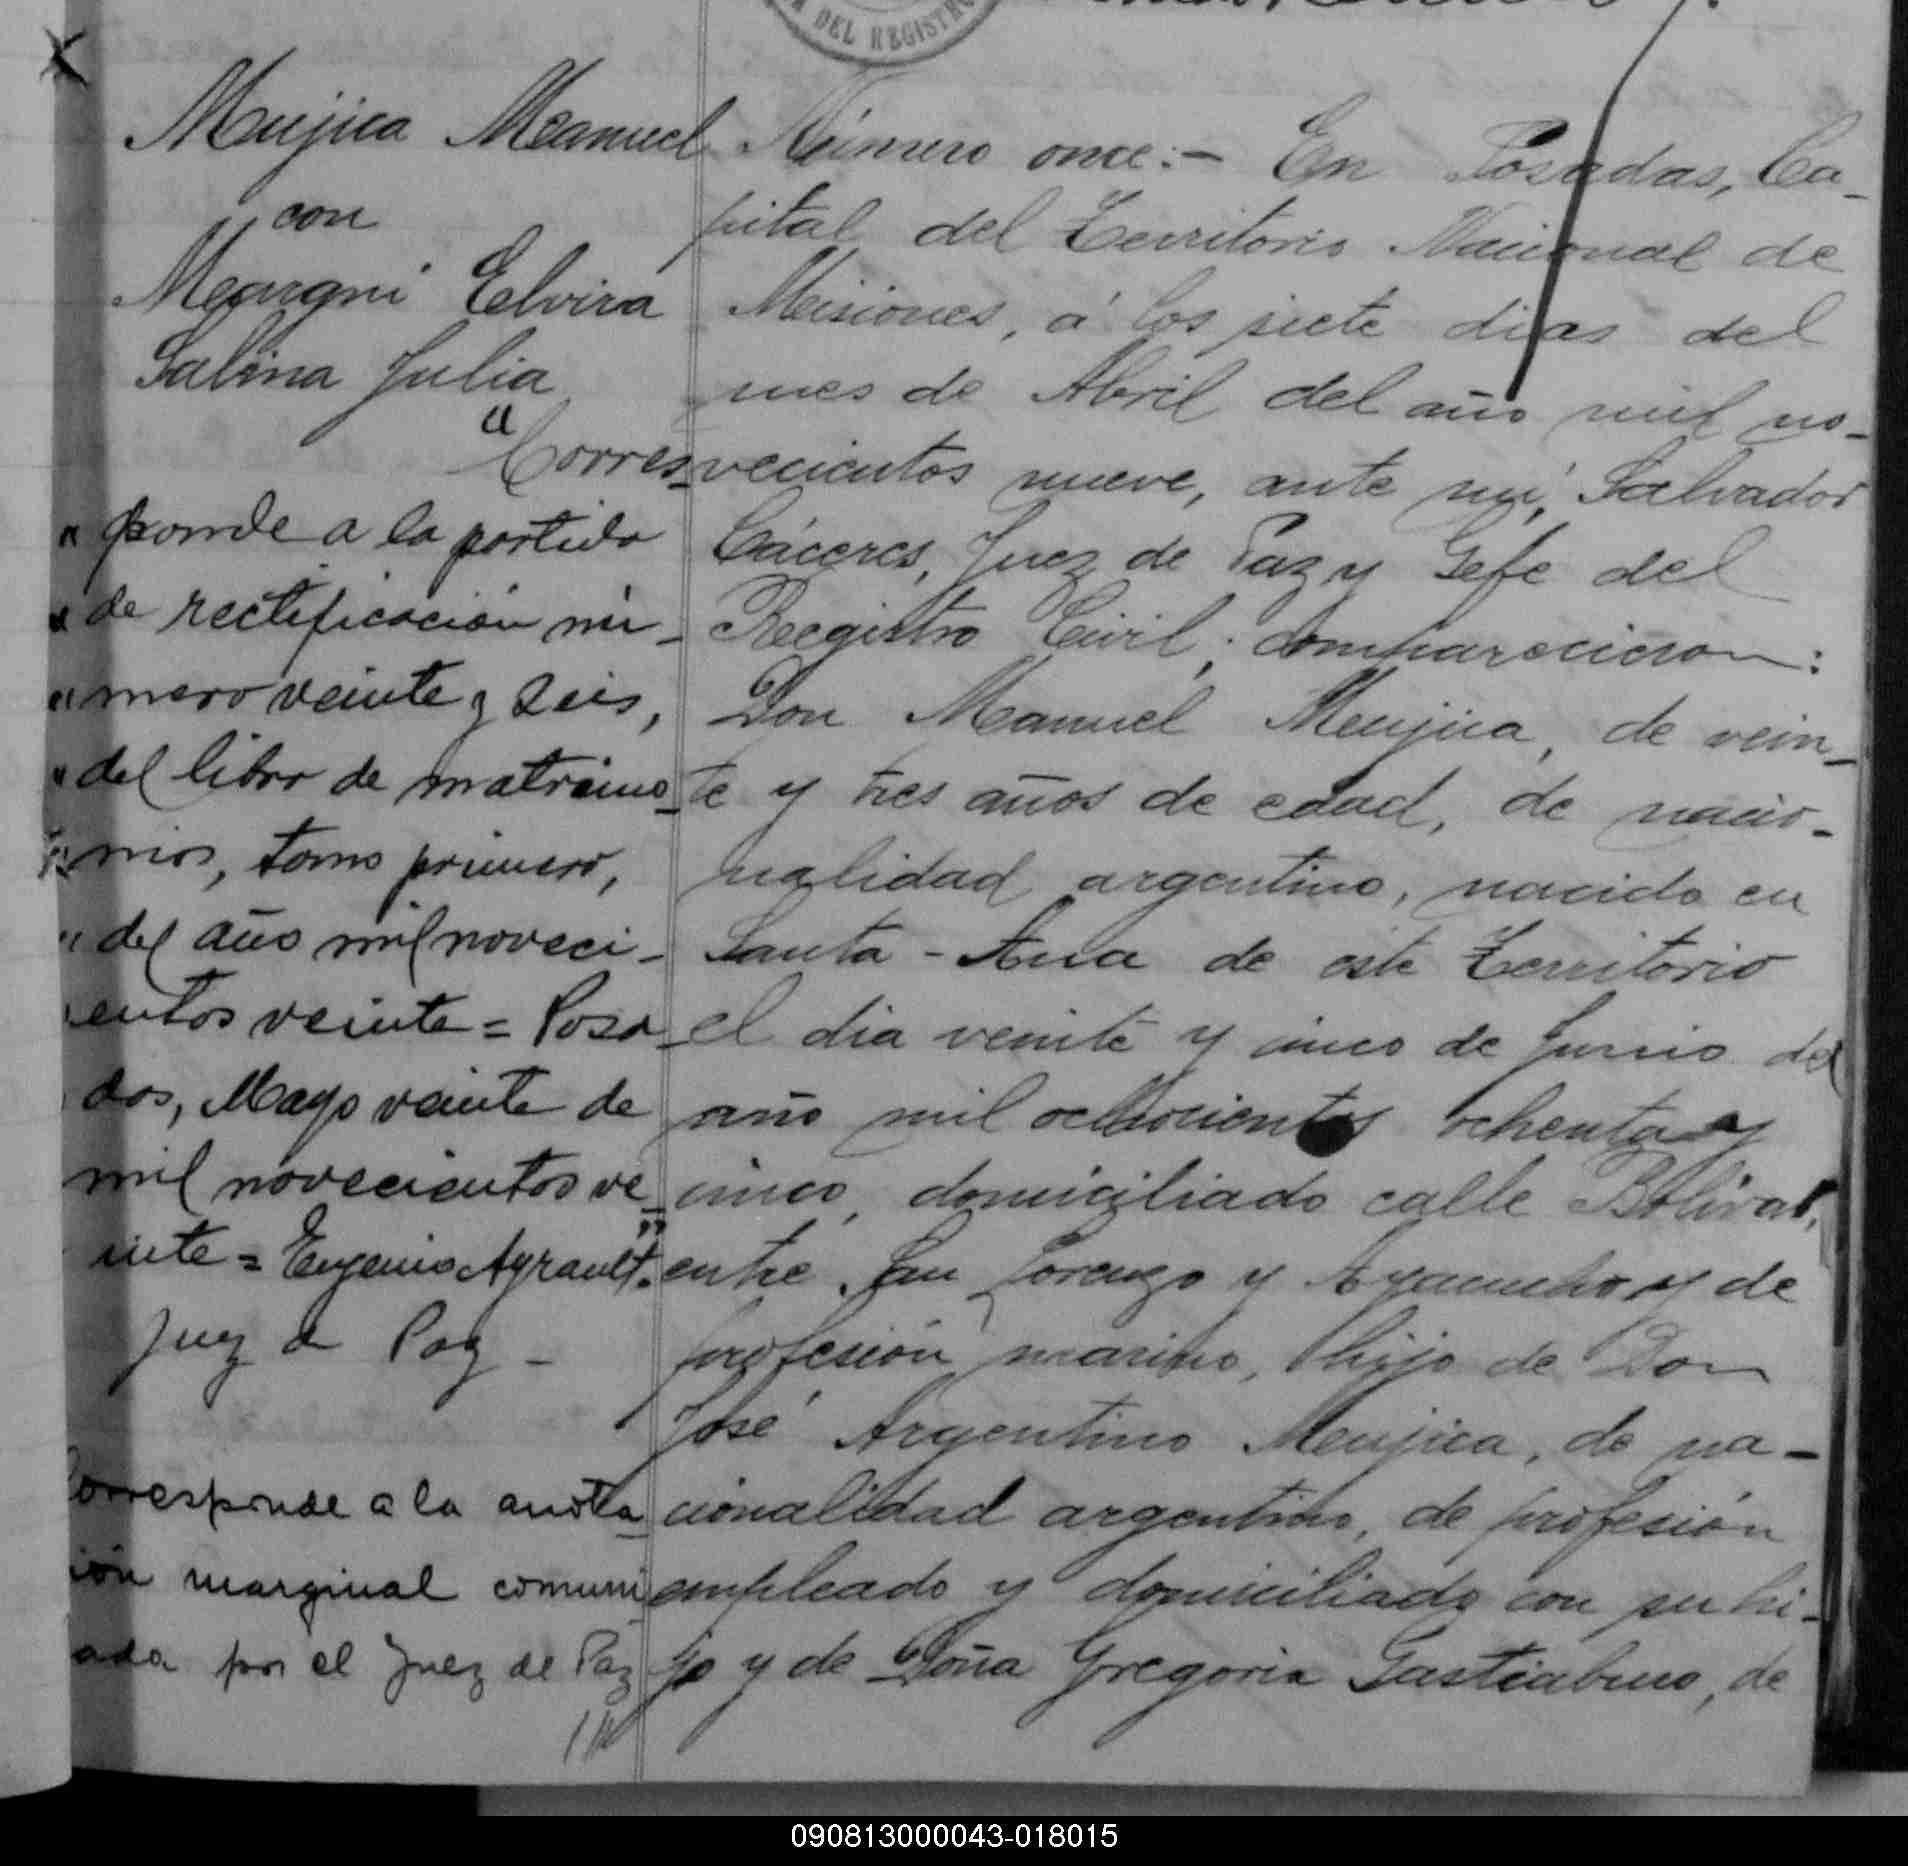 DEL REGISTRO
Mujica Manuel
con
Margni Elvira
Salina Julia
"Corres-
"ponde a la partida
"de rectificación nú-
"mero veinte y seis,
"del libro de matrimo-
"nios, tomo primero,
"del año mil noveci-
entos veinte = Posa-
das, Mayo veinte de
mil novecientos ve-
inte = Eugenio Ayrault."
Juez de Paz -
Corresponde a la anota-
ión marginal comuni-
ada por el Juez de Paz
Número once:- En Posadas, Ca-
pital del Territorio Nacional de
Misiones, á los siete dias del
mes de Abril del año mil no-
vecientos nueve, ante mí, Salvador
Cáceres, Juez de Paz y Gefe del
Registro Civil; comparecieron:
Don Manuel Mujica, de vein-
te y tres años de edad, de nacio-
nalidad argentino, nacido en
Santa-Ana de este Territorio
el dia veinte y cinco de Junio del
año mil ochocientos ochenta y
cinco, domiciliado calle Bolivar,
entre San Lorenzo y Ayacucho y de
profesión marino, hijo de Don
José Argentino Mujica, de na-
cionalidad argentino, de profesión
empleado y domiciliado con su hi-
jo y de Doña Gregoria Gastiaburo, de
090813000043-018015